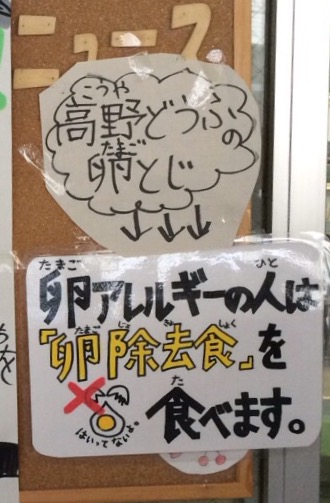 ニュース
こうや
高野どうふの
たまご
卵とじ
↓↓↓
たまご ひと
卵アレルギーの人は
たまご じょ きょ しょく
「卵除去食」を
た
食べます。
はいってないよ。